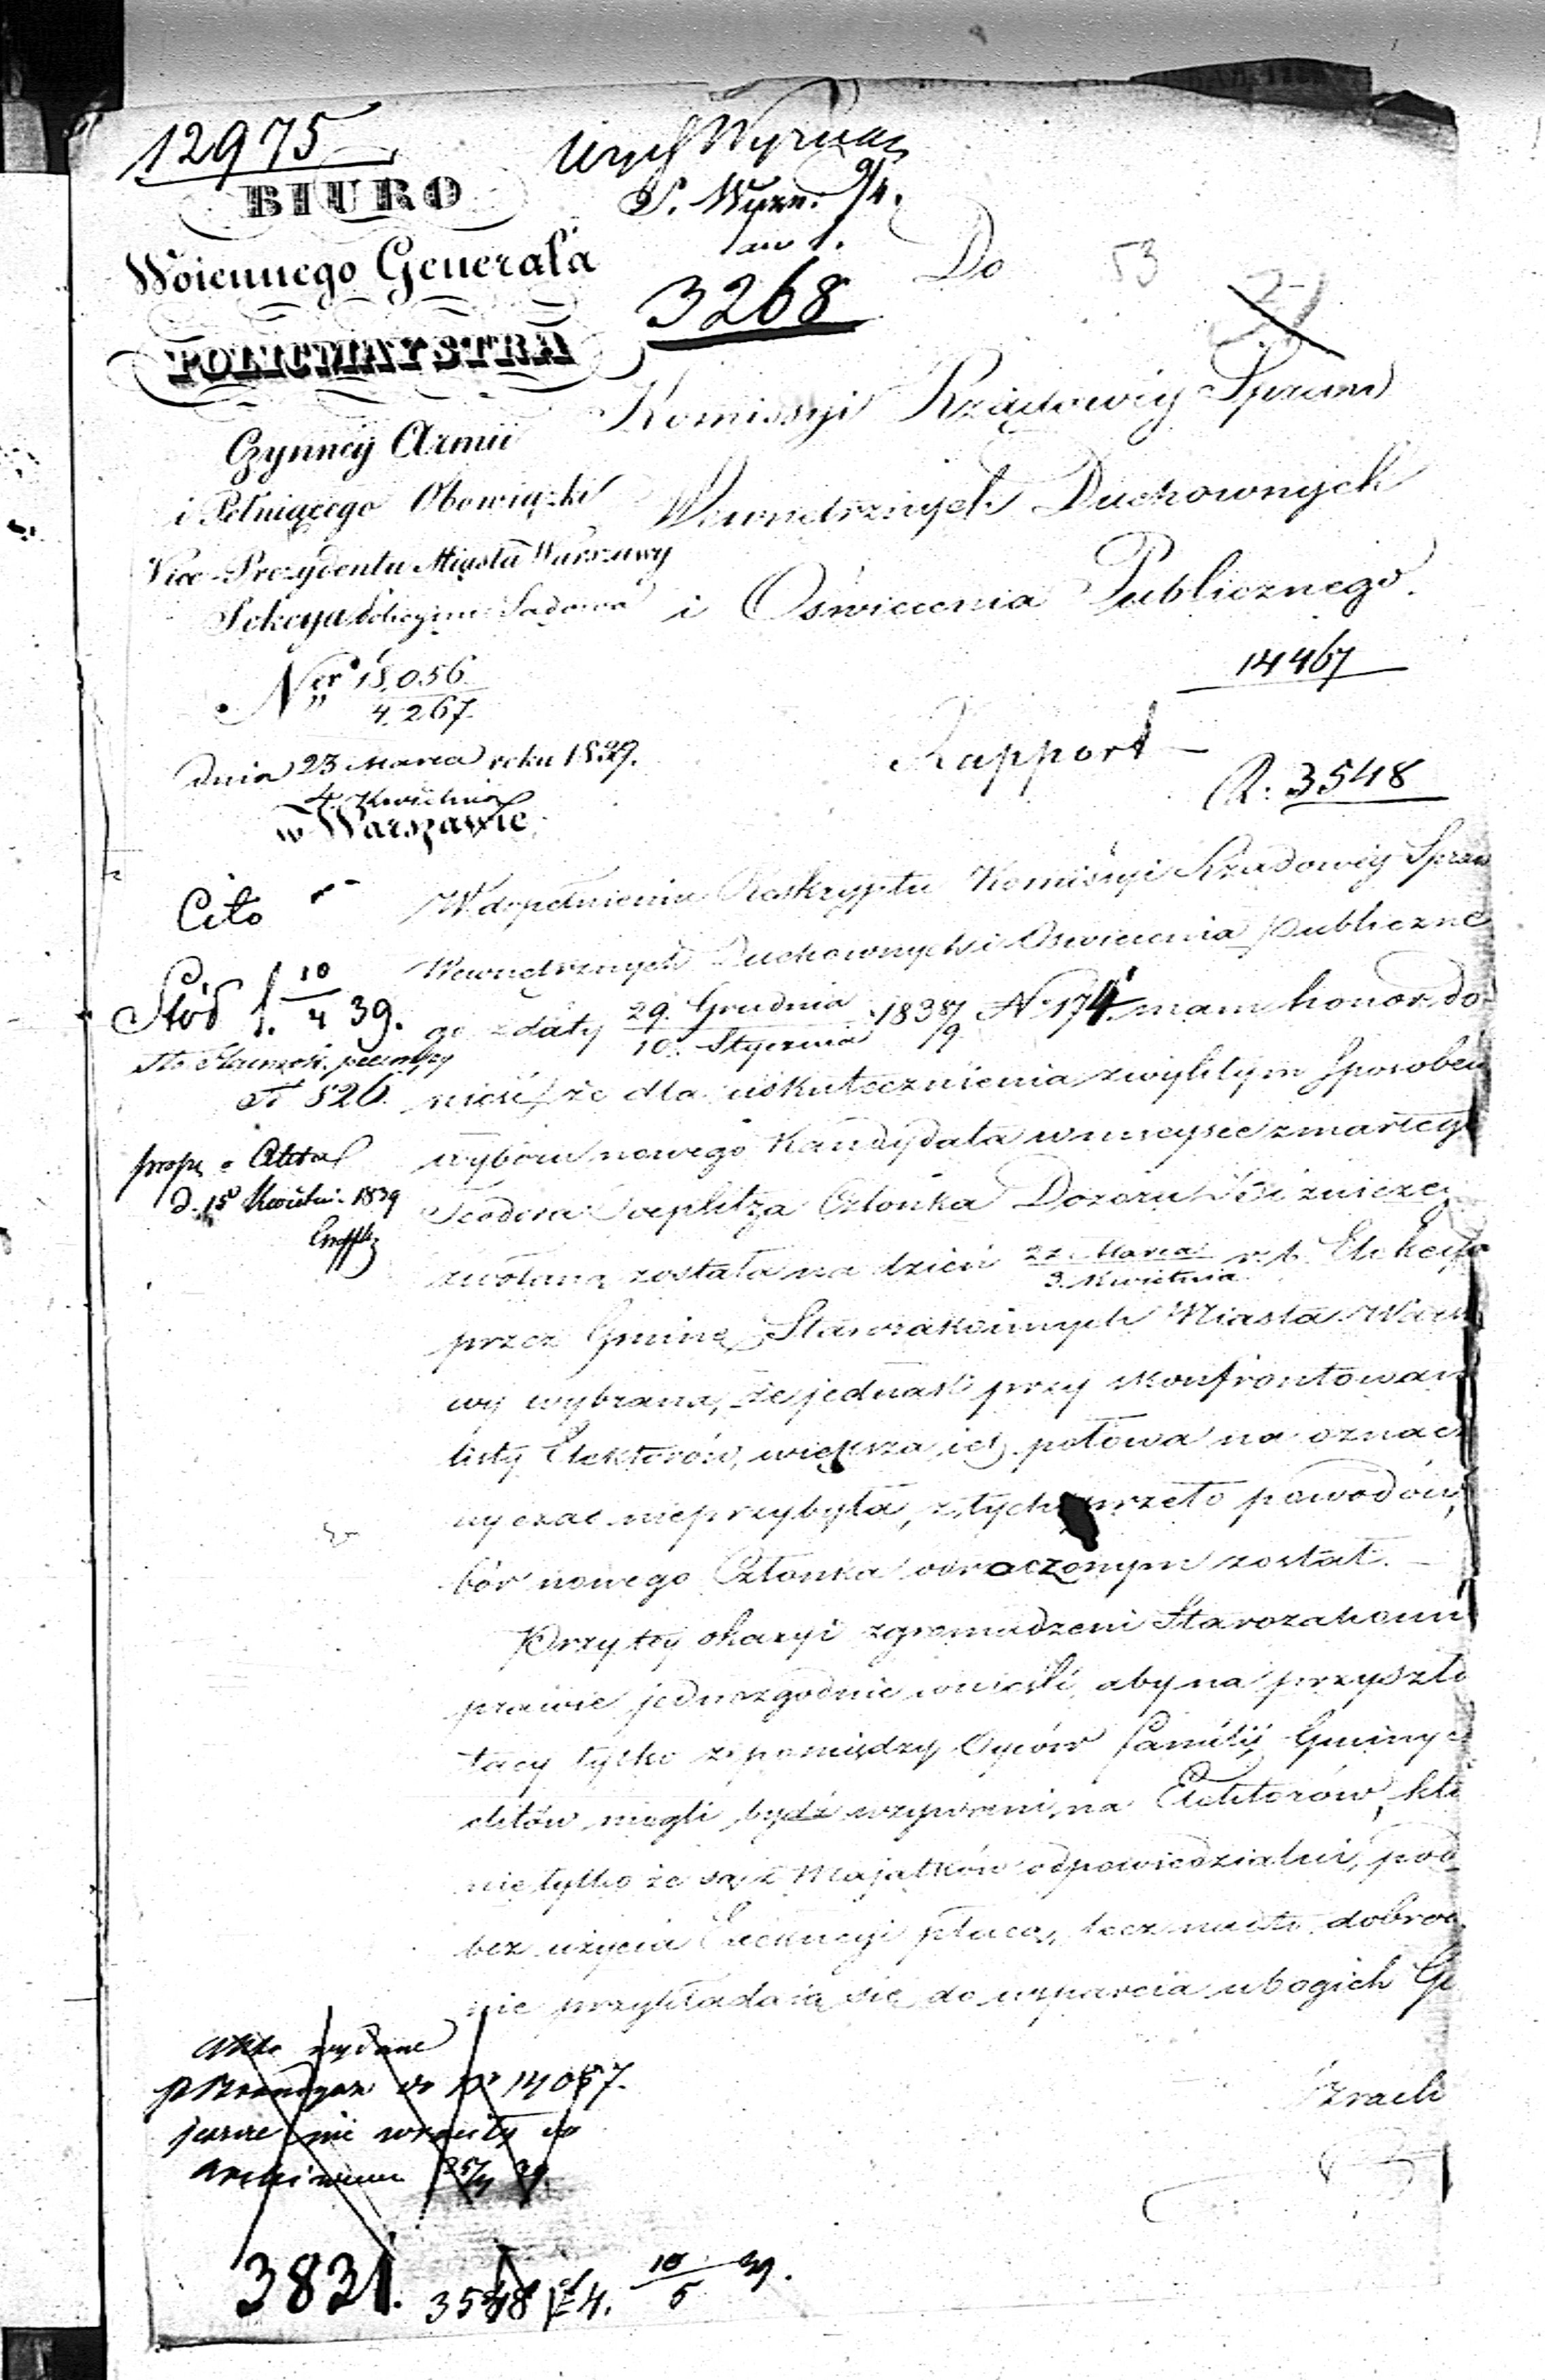 12975
BIURO
Woiennego Generała
POLICMAYSTRA
Czynney Armii
i Pełniącego Obowiązki
Vice-Prezydenta Miasta Warszawy
Sekcya Policyjno Sądowa
Ner 18,056
4,267.
Dnia 23 Marca roku 1839.
4. Kwietnia
w Warszawie
S. Wyzn. 9/4.
3268
Do
53
Kommissyi Rządowéy Spraw
Wewnetrznych Duchownych
i Oświecenia Publicznego.
14467
Rapport
R. 3548
Cito
10
4 39.
F 526.
d. 15 Kwietni 1839
W dopełnieniu Reskryptu Komissyi Rządowéy Spraw
Wewnętrznych Duchownych i Oswiecenia Publiczne
go z daty 29 Grudnia 1838/9 N. 174 mam honor do
10. Stycznia
nieść, że dla uskutecznienia zwykłym sposobem
wyboru nowego Kandydata w mieysce zmarłego
Teodora Toeplitza Członka Dozoru Bóżnicze
zwołaną została na dzień 22 Marca r. b. Elekcya
3. Kwietnia
przez Gminę Starozakonnych Miasta Warsza
wy wybrana, że jednak przy skonfrontowan
listy Elektorów, większa ich połowa na oznacz
ny czas nieprzybyła, z tych przeto powodów
bór nowego Członka odroczonym został.
Przy téy okazyi zgromadzeni Starozakonni
prawie jednozgodnie wnieśli, aby na przyszło
tacy tylko z pomiędzy Oyców familij Gminy
mogli bydź wzywani, na Elektorów, któ
nie tylko że są z Majątków odpowiedzialni, pod
bez użycia Exekucyi płacą, lecz nadto dobrow
nie przykładaią się do wsparcia ubogich
Izrael
Akta wydane
do N 14057.
jeszcze nie wróciły do
Archiwum 25/4 39.
3831.
3548 4. 10/5 39.